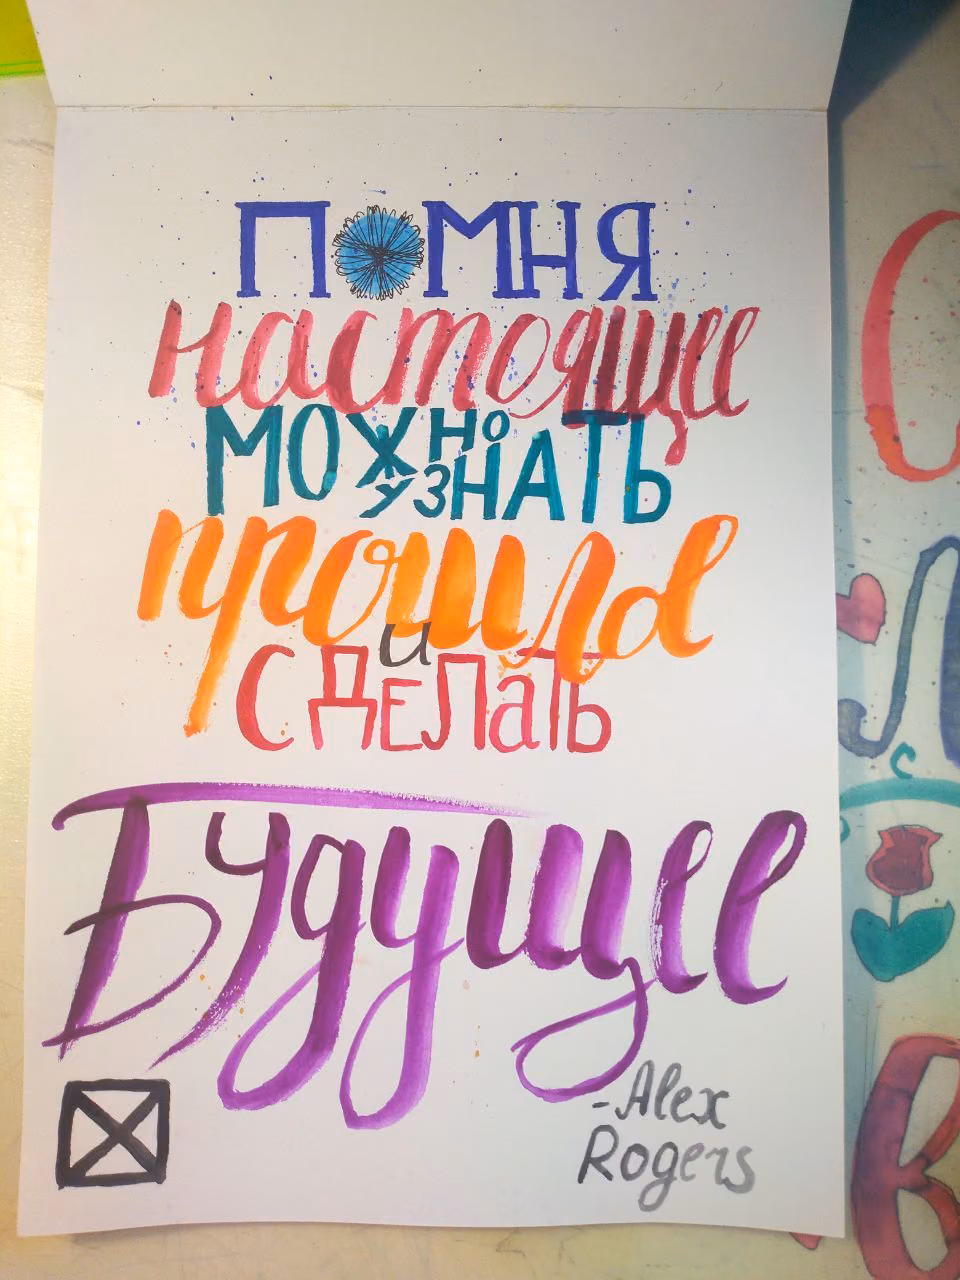 ПОМНЯ
настоящее
МОЖНО УЗНАТЬ
прошлое
и
СДЕЛАТЬ
Будущее
-Alex
Rogers